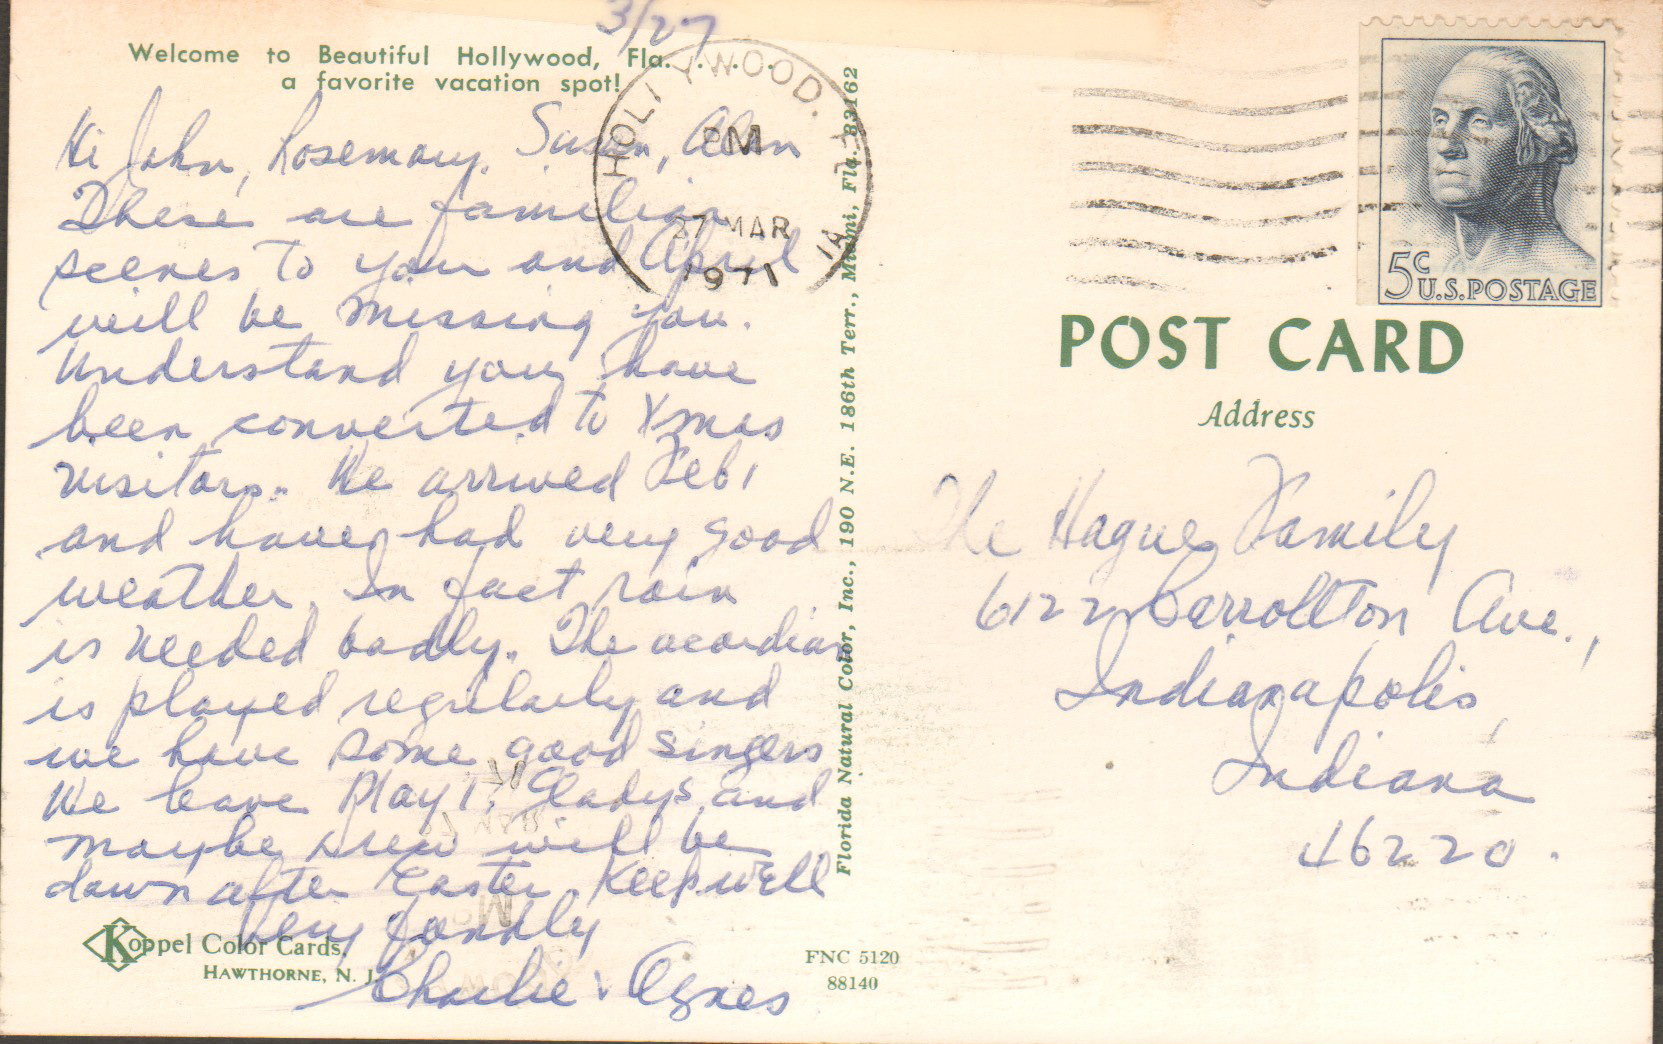 3/27
Welcome to Beautiful Hollywood, Fla. . . . .
a favorite vacation spot!
HOLLYWOOD, FLA
PM
27 MAR
1971
5c
U.S. POSTAGE
Hi John, Rosemary, Susan, Alan
These are familiar
scenes to you and April
will be missing you.
Understand you have
been converted to Xmas
visitors. We arrived Feb 1
and have had very good
weather. In fact rain
is needed badly. The acordian
is played regularly and
we have some good singers
We leave May 1. Gladys and
maybe Drew will be
down after Easter. Keep well
Very fondly
Charlie & Agnes
Florida Natural Color, Inc., 190 N.E. 186th Terr., Miami, Fla. 33162
POST CARD
Address
The Hague Family
6122 Carrollton Ave.,
Indianapolis,
Indiana
46220.
Koppel Color Cards.
HAWTHORNE, N. J.
FNC 5120
88140